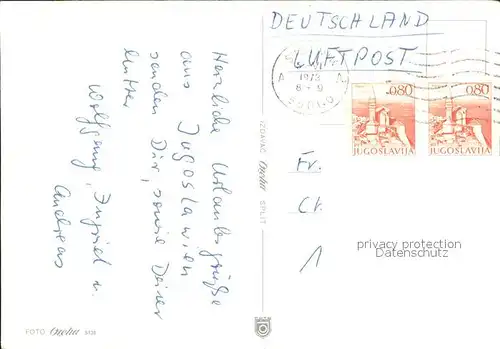 DEUTSCHLAND
LUFTPOST
1973
8-9
0,80
JUGOSLAVIJA
0,80
JUGOSLAVIJA
Herzliche Urlaubsgrüße
aus Jugoslawien
senden Dir, sowie Deiner
Mutter
Wolfgang, Ingrid u.
Andreas
Fr.
Cr.
1
privacy protection
Datenschutz
IZDAVAČ SPLIT
FOTO